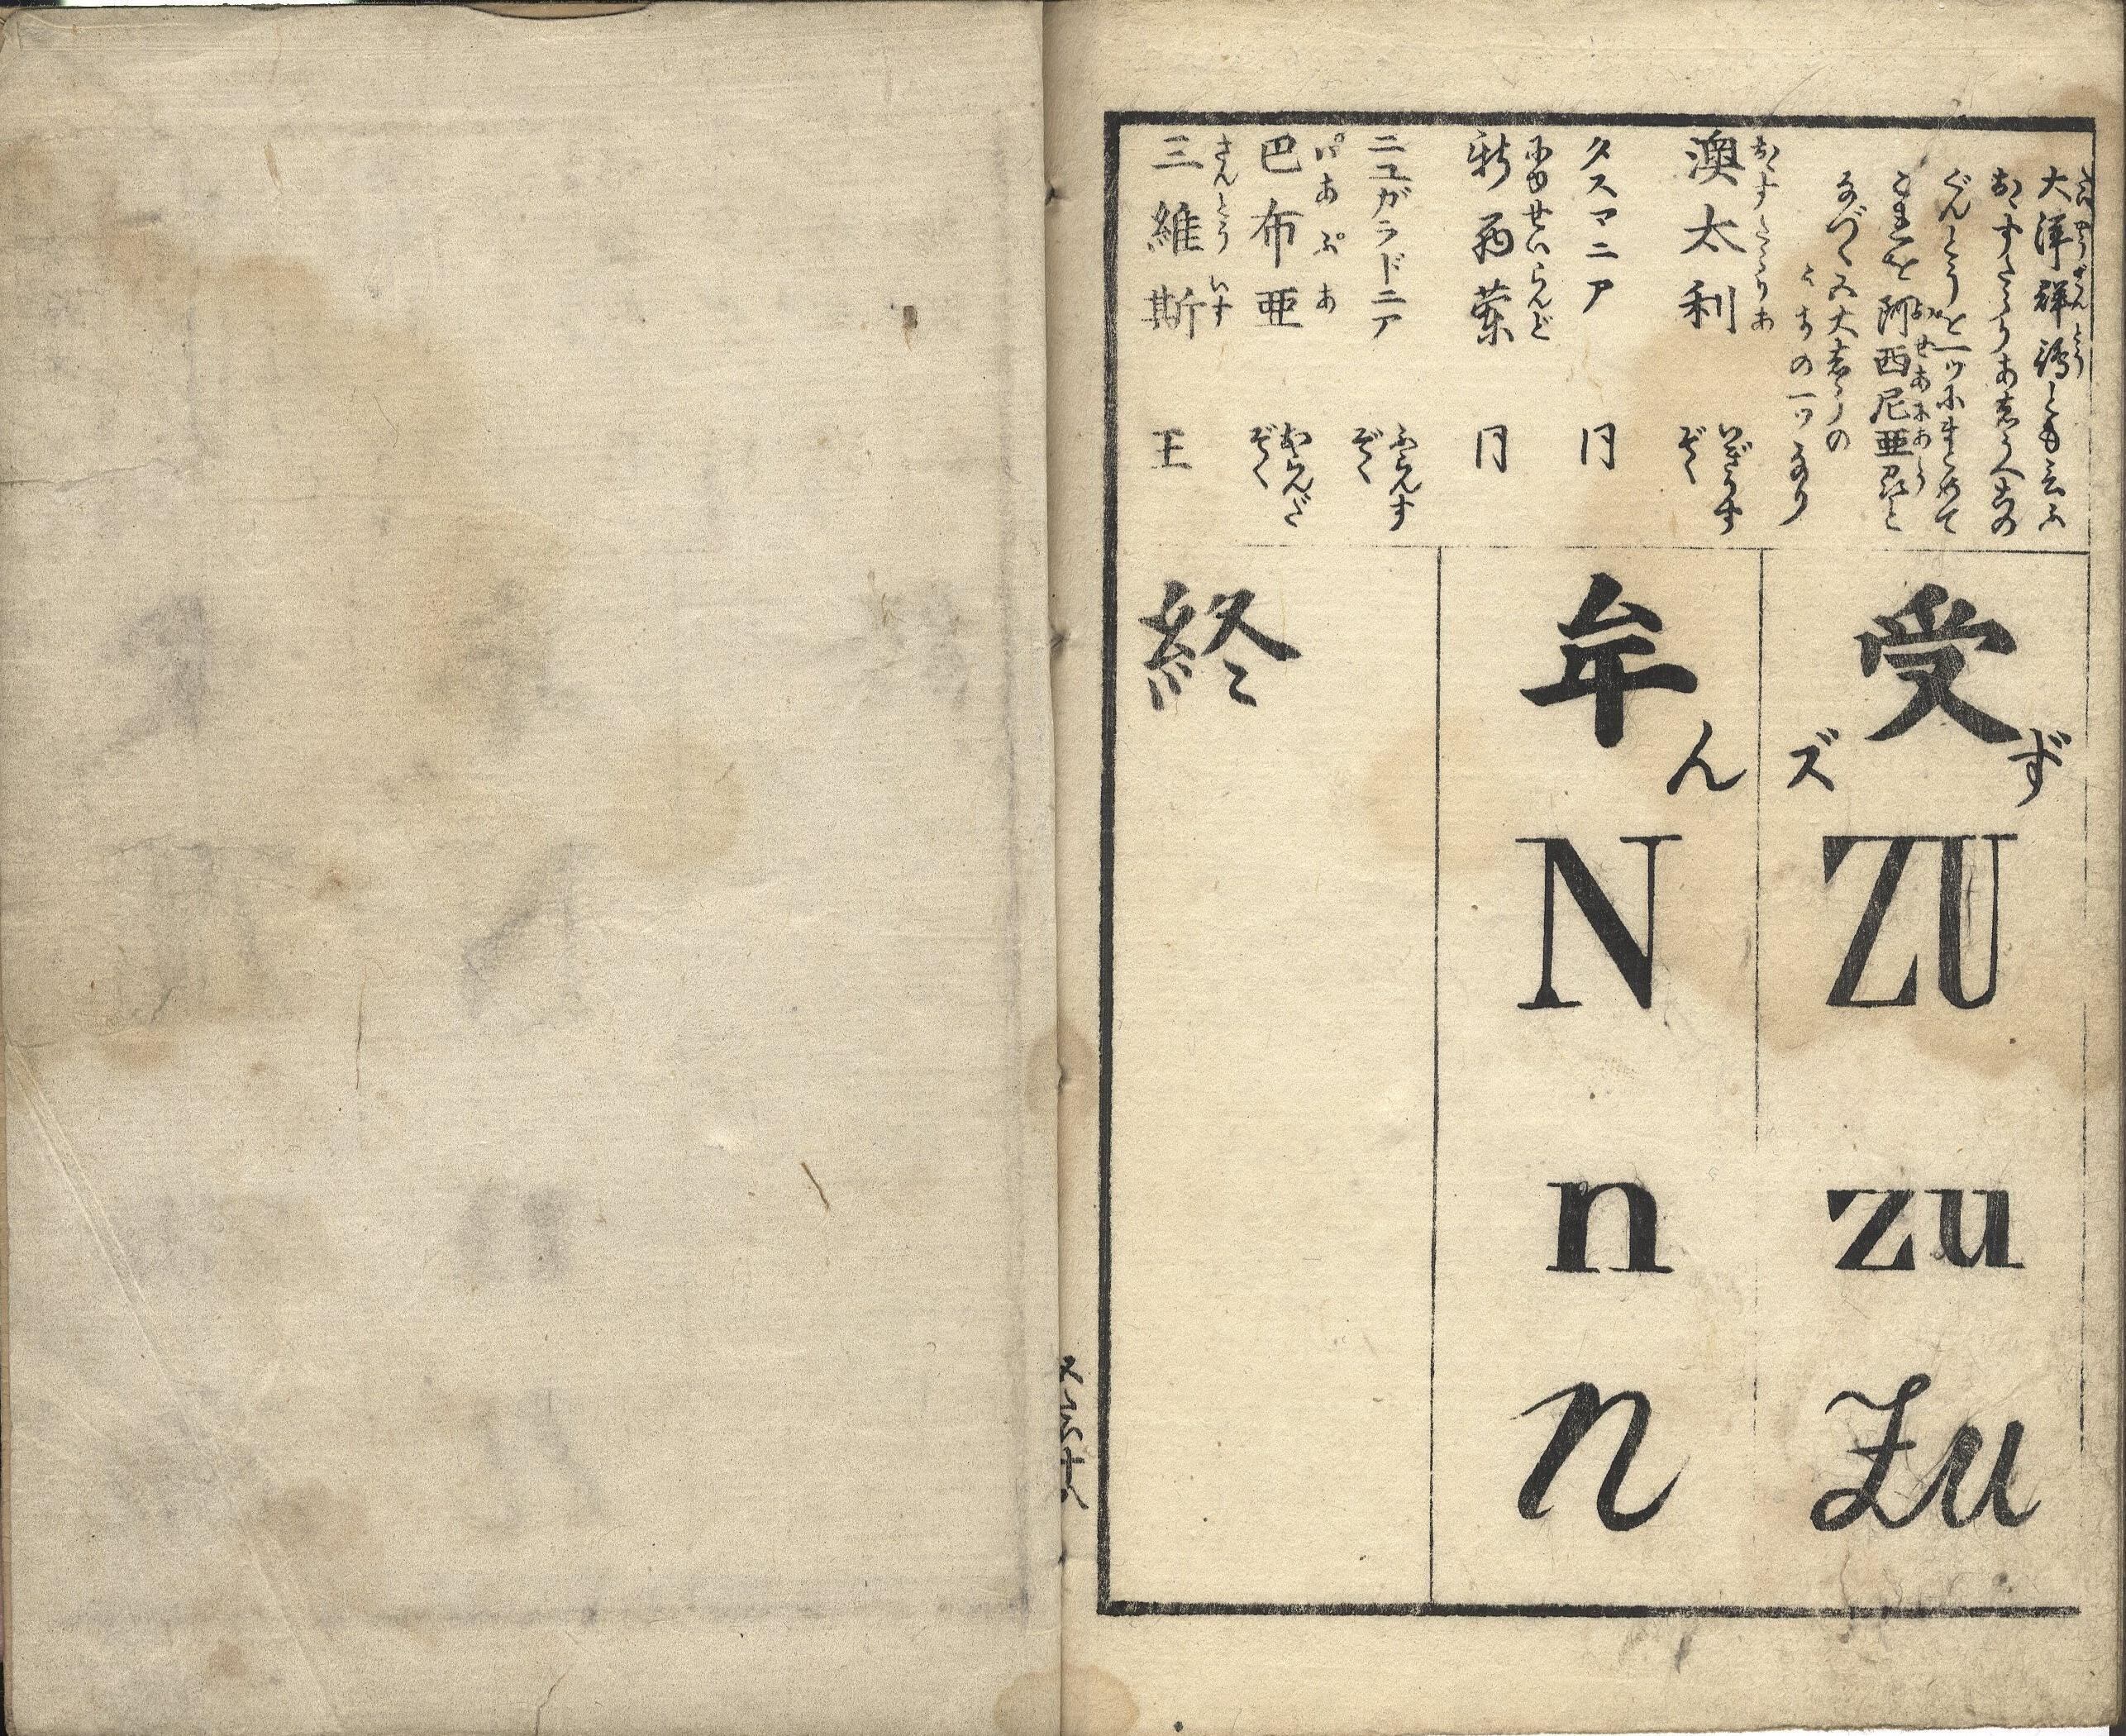 大洋群島とも云ふ
たいやうぐんとう
おすたらりあ
ぐんとうと一ツにまとめて
これを阿西尼亜
おせあにあ
なづく五大
の一ツなり
澳太利
おすたらりあ
いぎりす
ぞく
タスマニア
同
新西蘭
にうせいらんど
同
ニユガラドニア
ふらんす
ぞく
巴布亜
ぱあぷあ
おらんだ
ぞく
三維斯
さんとういす
王
受
ず
ズ
ZU
zu
Zu
牟
ん
N
n
n
終